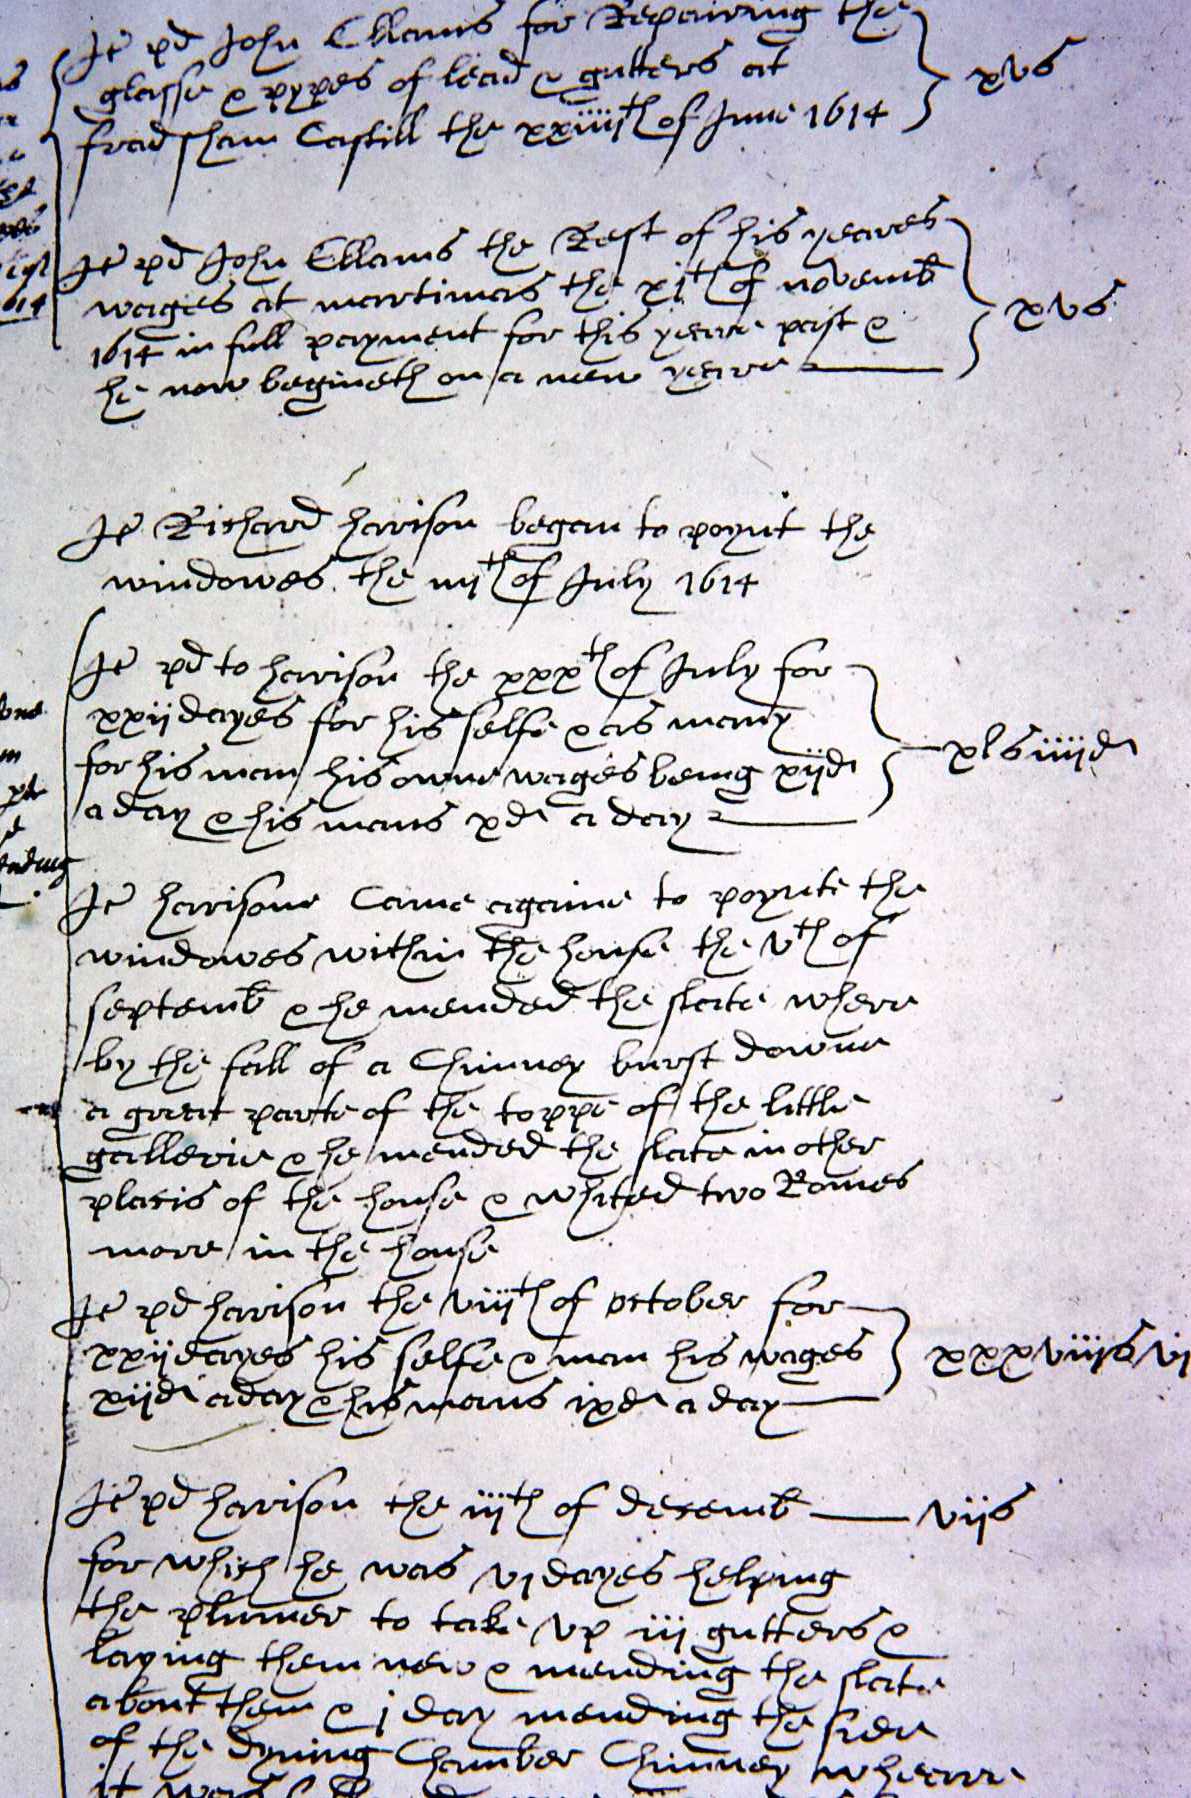 Itē pd John Ellams for Repairing the
glasse & pypes of lead & gutters at
fradsham Castill the xxiiijth of June 1614
xvs
Itē pd John Ellams the Rest of his yeares
wages at martimas the xjth of novemb
1614 in full payment for this yeare past &
he now begineth on a new yeare
xvs
Itē Richard harison began to poynt the
windowes the iiijth of July 1614
Itē pd to harison the xxxth of July for
xxij dayes for his selfe & as many
for his man his owne wages being xijd
a day & his mans xd a day
xls iiijd
Itē harisone Came againe to poynte the
windowes within the house the vth of
septemb & he mended the slate where
by the fall of a Chimney burst downe
a great parte of the toppe of the little
gallerie & he mended the slate in other
placis of the house & whited two Romes
more in the house
Itē pd harison the viijth of october for
xxij dayes his selfe & man his wages
xijd a day & his mans ixd a day
xxxviijs vj
Itē pd harison the iijth of decemb
vijs
for which he was vj dayes helping
the plumer to take vp iij gutters &
laying them new & mending the slate
about them & j day mending the side
of the dyning Chamber Chimney wheare
it was
1614